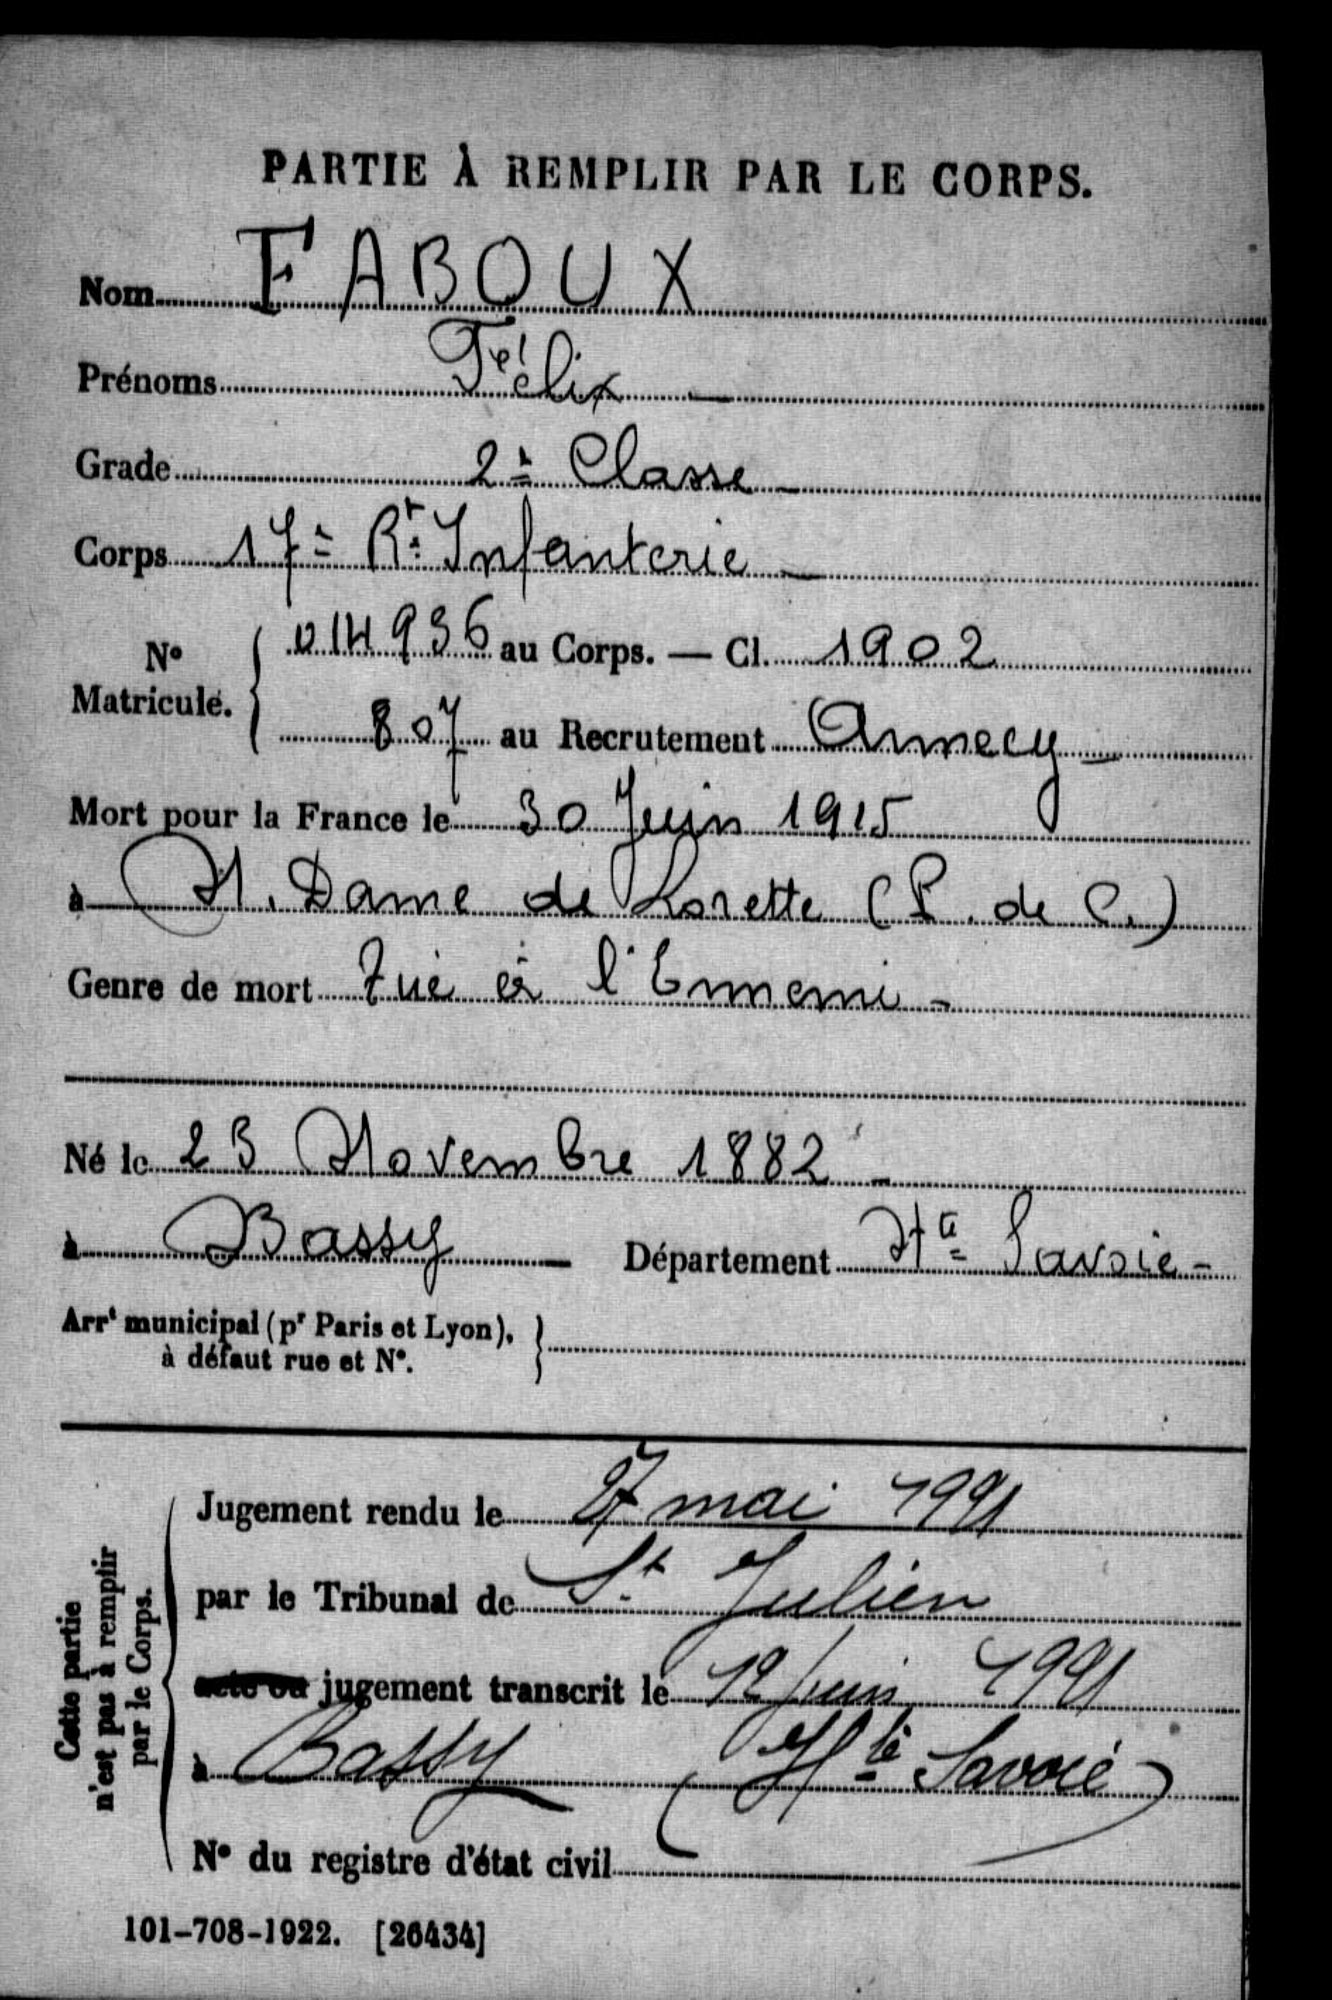 PARTIE À REMPLIR PAR LE CORPS.
Nom FABOUX
Prénoms Félix
Grade 2e Classe
Corps 17e Rt. Infanterie
N° Matricule. 014936 au Corps. — Cl. 1902
807 au Recrutement Annecy
Mort pour la France le 30 Juin 1915
à N. Dame de Lorette (P. de C.)
Genre de mort Tué à l'Ennemi
Né le 23 Novembre 1882
à Bassy Département Hte Savoie
Arrt municipal (pr Paris et Lyon),
à défaut rue et N°.
Cette partie
n'est pas à remplir
par le Corps.
Jugement rendu le 27 mai 1921
par le Tribunal de St. Julien
acte ou jugement transcrit le 12 juin 1921
à Bassy (Hte Savoie)
N° du registre d'état civil
101-708-1922. [26434]